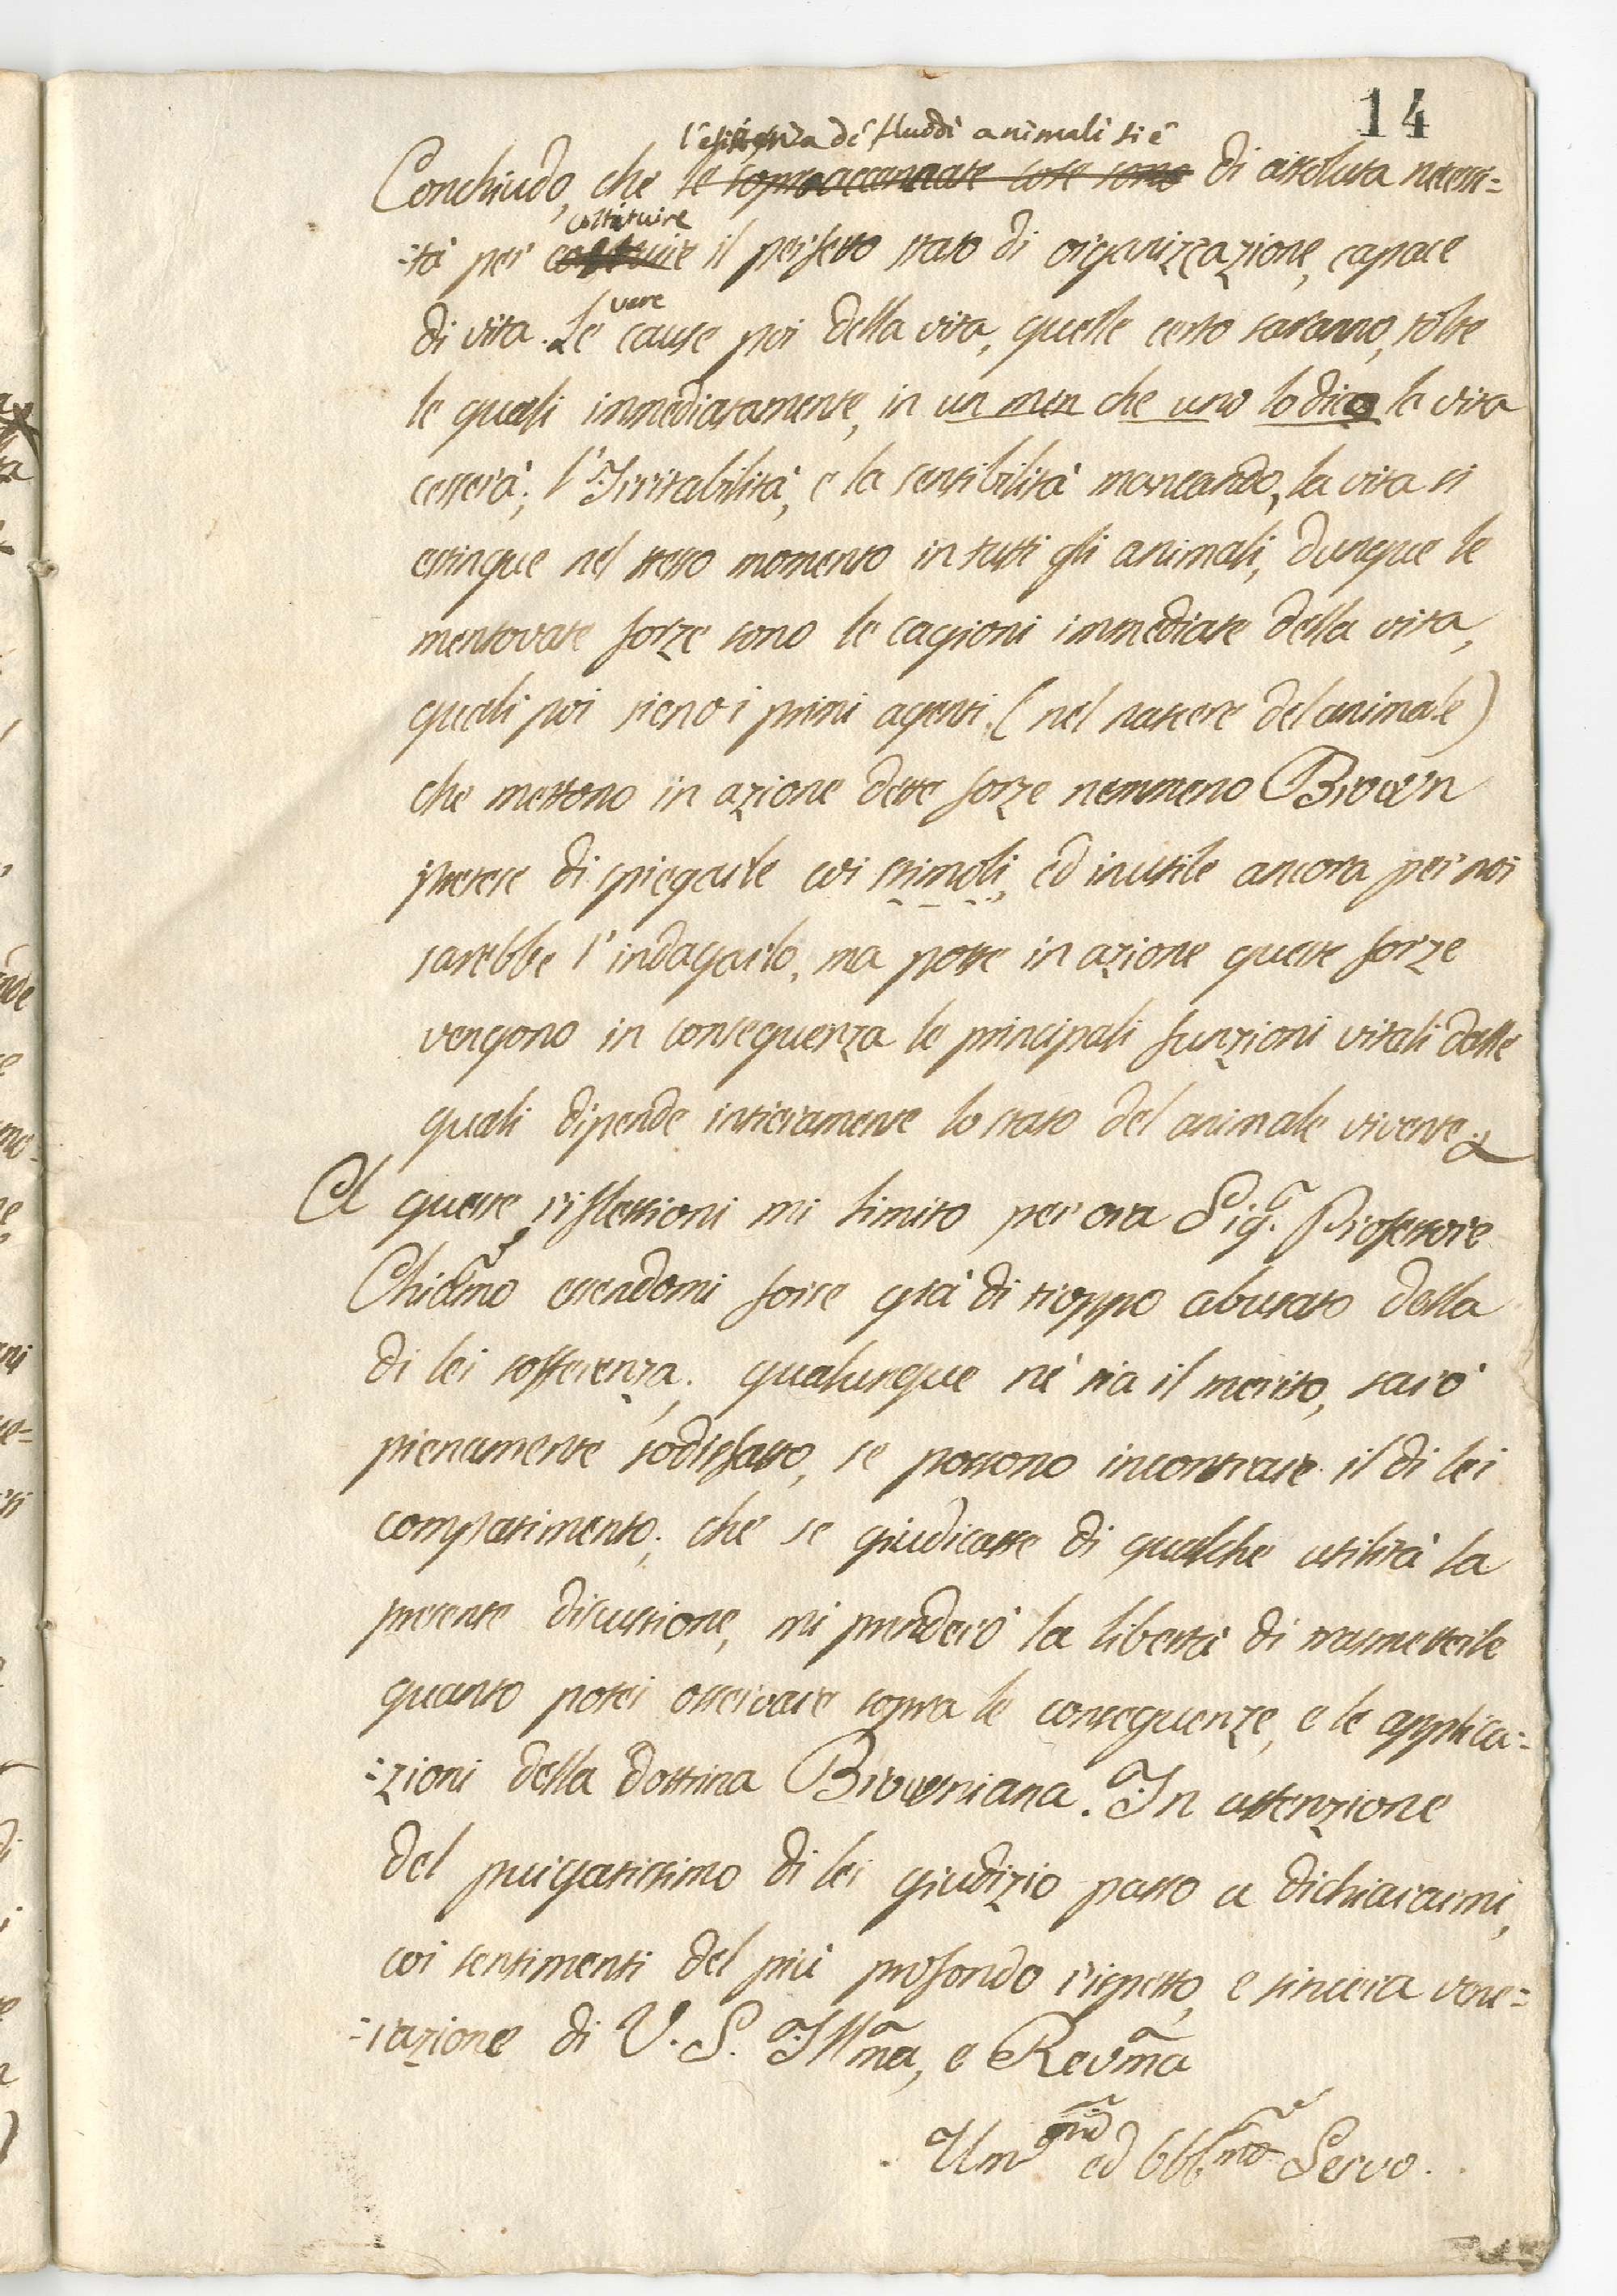 14
l'esistenza de' fluddi animali si è
Conchiudo, che le sopraaccennate cose sono di assoluta necessi=
costituire
=tà per costruire il perfetto stato di organizzazione, capace
vere
di vita. Le cause poi della vita, quelle certo saranno, tolte
le quali immediatamente, in un men che uno lo dica la vita
cesserà; l'Irritabilità, e la sensibilità mancando, la vita si
estingue nel stesso momento in tutti gli animali, dunque le
mentovate forze sono le cagioni immediate della vita,
quali poi sieno i primi agenti (nel nascere del animale)
che mettono in azione dette forze nemmeno Brown
pretese di spiegarle coi stimoli, ed inutile ancora per noi
sarebbe l'indagarlo, ma poste in azione queste forze
vengono in conseguenza le principali funzioni vitali dalle
quali dipende intieramente lo stato del animale vivente.
A queste riflessioni mi limito per ora Sig.r Professore
Chiarmo essendomi forse già di troppo abusato della
di lei sofferenza; qualunque nè sia il merito, sarò
pienamente sodisfatto, se possono incontrare il di lei
compatimento; che se giudicasse di qualche utilità la
presente discussione, mi prenderò la libertà di trasmetterle
quanto potei osservare sopra le conseguenze, e le applica=
=zioni della dottrina Browniana. In attenzione
del purgatissimo di lei giudizio passo a dichiararmi,
coi sentimenti del più profondo rispetto, e sincera vene=
=razione di V. S. Illma, e Revma
Umo ed obblmo Servo.